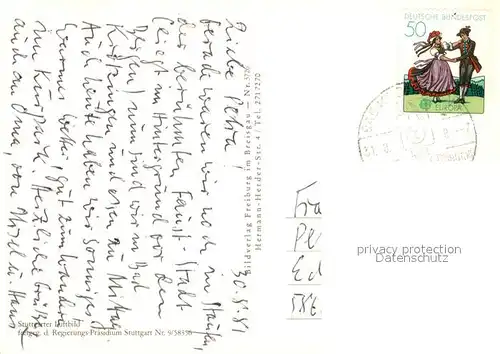 30.8.81
Liebe Petra!
Gerade waren wir noch in Staufen,
der berühmten Faust-Stadt
(liegt im Hintergrund vor den
Bergen), nun sind wir in Bad
Krozingen und essen zu Mittag.
Auch heute haben wir sonniges,
warmes Wetter, gut zum Wandern
im Kurpark. Herzliche Grüße
auch an Oma, von Ursel u. Hans
Stuttgarter Luftbild
freigeg. d. Regierungs-Präsidium Stuttgart Nr. 9/58556
Bildverlag Freiburg im Breisgau — Nr. 5726
Hermann-Herder-Str. 4 / Tel. 2717270
DEUTSCHE BUNDESPOST
50
EUROPA
Fra
Pe
Ed
privacy protection
DELCAMPE